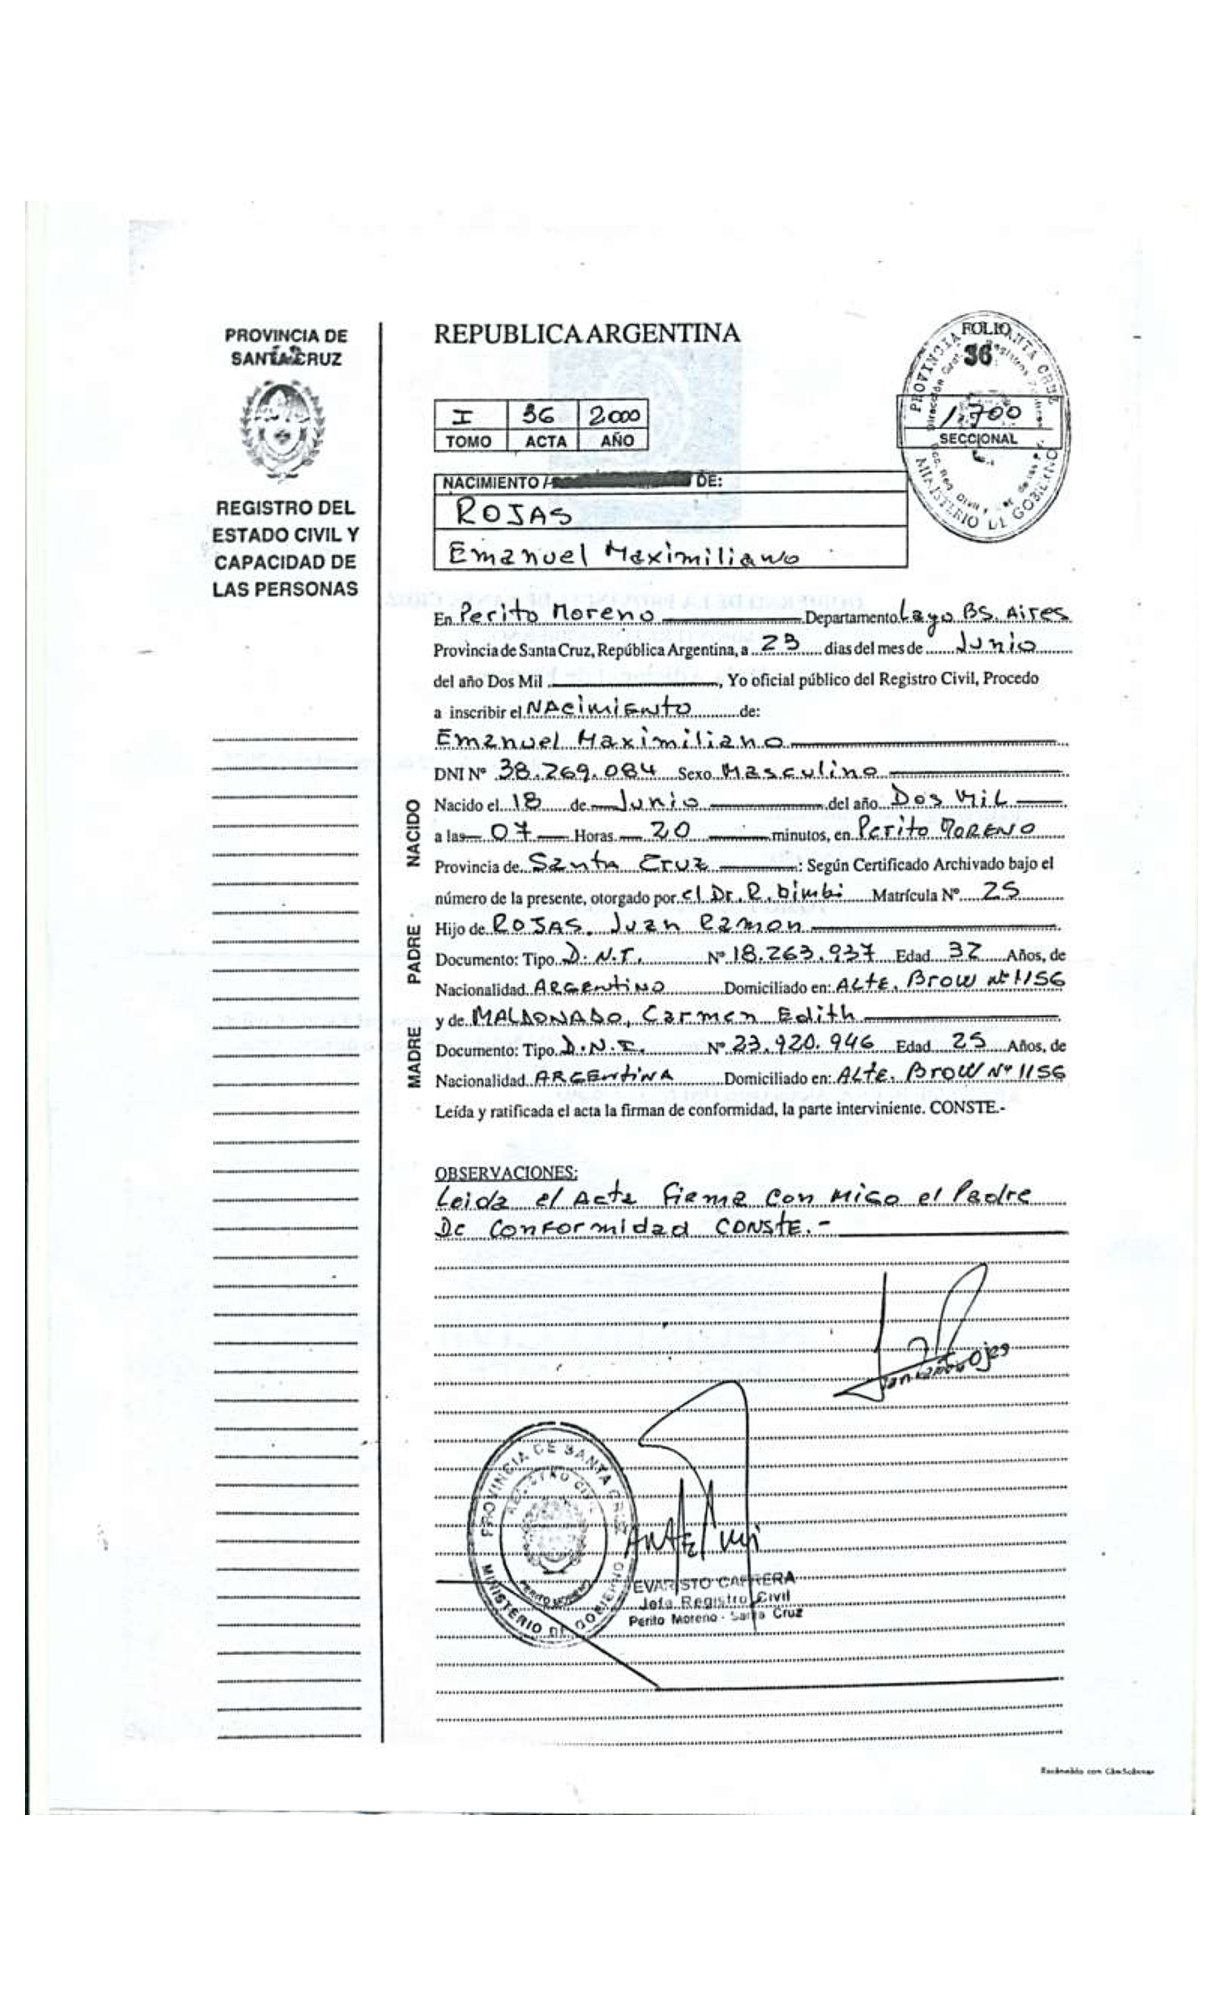 PROVINCIA DE
SANTA CRUZ
REGISTRO DEL
ESTADO CIVIL Y
CAPACIDAD DE
LAS PERSONAS
REPUBLICA ARGENTINA
FOLIO
36
PROVINCIA SANTA CRUZ
MINISTERIO DE GOBIERNO
1.700
SECCIONAL
I 36 2000
TOMO ACTA AÑO
NACIMIENTO / DE:
ROJAS
Emanuel Maximiliano
En Perito Moreno Departamento Lago BS. Aires
Provincia de Santa Cruz, República Argentina, a 23 dias del mes de Junio
del año Dos Mil , Yo oficial público del Registro Civil, Procedo
a inscribir el NAcimiEnto de:
Emanuel Maximiliano
DNI Nº 38.269.084 Sexo Masculino
NACIDO
Nacido el 18 de Junio del año Dos MiL
a las 07 Horas 20 minutos, en Perito MORENO
Provincia de Santa Cruz : Según Certificado Archivado bajo el
número de la presente, otorgado por el Dr. R. bimbi Matrícula Nº 25
PADRE
Hijo de ROJAS, Juan Ramon
Documento: Tipo D.N.I. Nº 18.263.937 Edad 32 Años, de
Nacionalidad ARGEntiNO Domiciliado en: ALtE. Brow Nº 1156
MADRE
y de MALDONADO, Carmen Edith
Documento: Tipo D.N.I. Nº 23.920.946 Edad 25 Años, de
Nacionalidad ARGEntiNA Domiciliado en: ALtE. Brow Nº 1156
Leída y ratificada el acta la firman de conformidad, la parte interviniente. CONSTE.-
OBSERVACIONES:
Leida el Acta firma Con Migo el Padre
De Conformidad CONStE.-
Rojas
PROVINCIA DE SANTA CRUZ
REGISTRO CIVIL
PERITO MORENO
MINISTERIO DE GOBIERNO
ANtE mi
EVARISTO CABRERA
Jefe Registro Civil
Perito Moreno - Santa Cruz
Escaneado con CamScanner